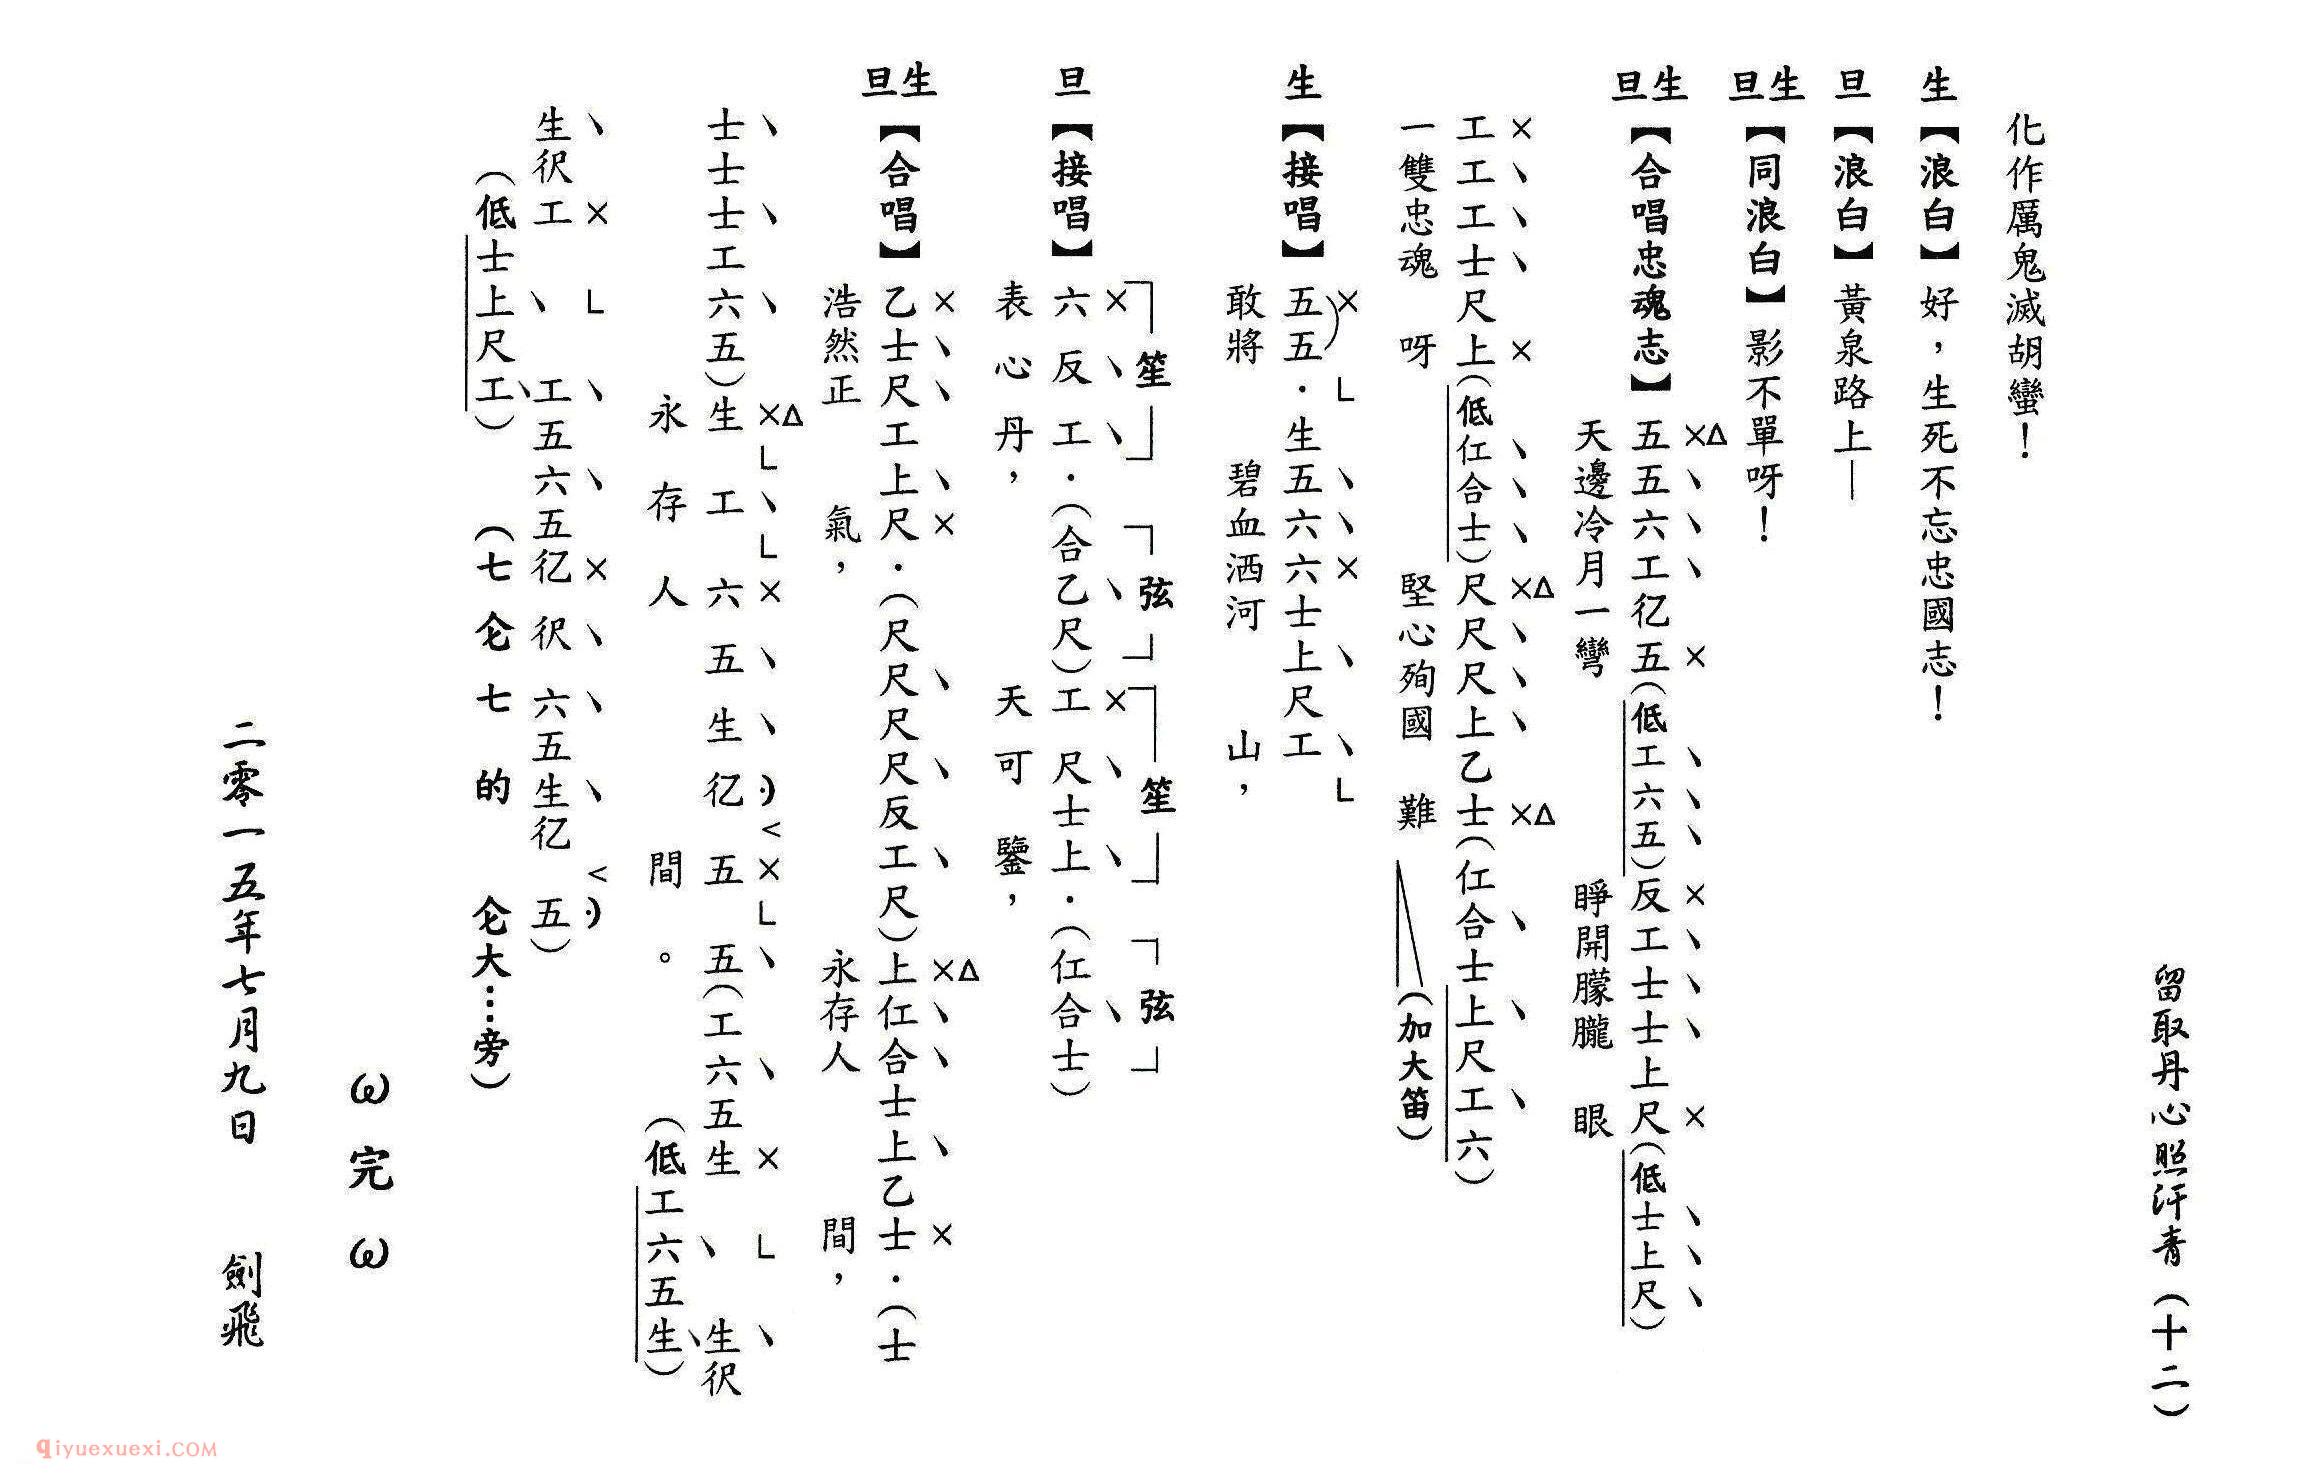 留取丹心照汗青（十二）
化作厲鬼滅胡蠻！
生【浪白】好，生死不忘忠國志！
旦【浪白】黃泉路上—
生旦【同浪白】影不單呀！
生旦【合唱忠魂志】五五六工伬五（低工六五）反工士士上尺（低士上尺）
天邊冷月一彎 睜開朦朧眼
工工工士尺上（低仜合士）尺尺尺上乙士（仜合士上尺工六）
一雙忠魂呀 堅心殉國難 （加大笛）
生【接唱】五五．生五六六士上尺工
敢將碧血洒河山，
笙 弦 笙 弦
旦【接唱】六反工．（合乙尺）工尺士上．（仜合士）
表心丹，天可鑒，
生旦【合唱】乙士尺工上尺．（尺尺尺尺反工尺）上仜合士上乙士．（士
浩然正氣，永存人間，
士士士工六五）生工六五生伬五五（工六五生 生伬
永存人間。 （低工六五生）
生伬工 工五六五伬伬六五生伬五）
（低士上尺工） （七仑七七的 仑大…旁）
ω 完 ω
二零一五年七月九日 劍飛
qiyuexuexi.COM